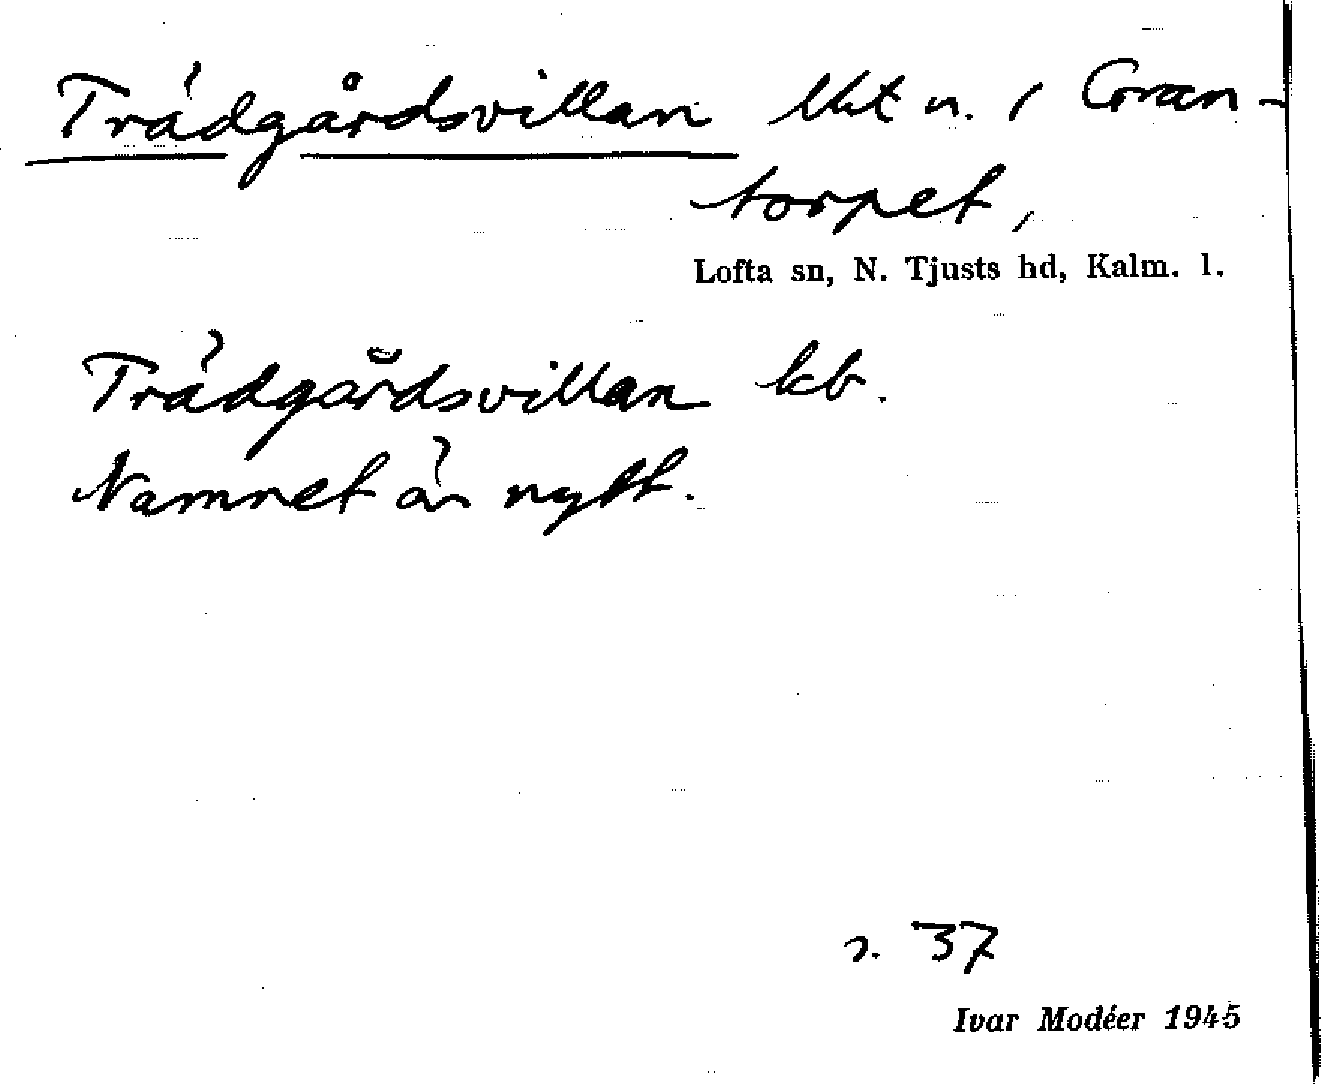 Trädgårdsvillan lht n. i Gran-
torpet,
Lofta sn, N. Tjusts hd, Kalm. l.
Trädgårdsvillan kb.
Namnet är nytt.
s. 37
Ivar Modéer 1945